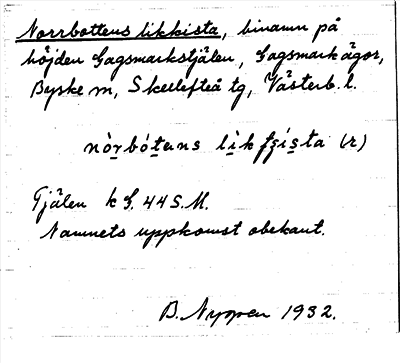 Norrbottens likkista, binamn på
höjden Gagsmarkstjälen, Gagsmark ägor,
Byske sn, Skellefteå tg, Västerb. l.
nòrbótens likfsísta (r)
Tjälen k G. 44 S.M.
Namnets uppkomst obekant.
B. Nygren 1932.